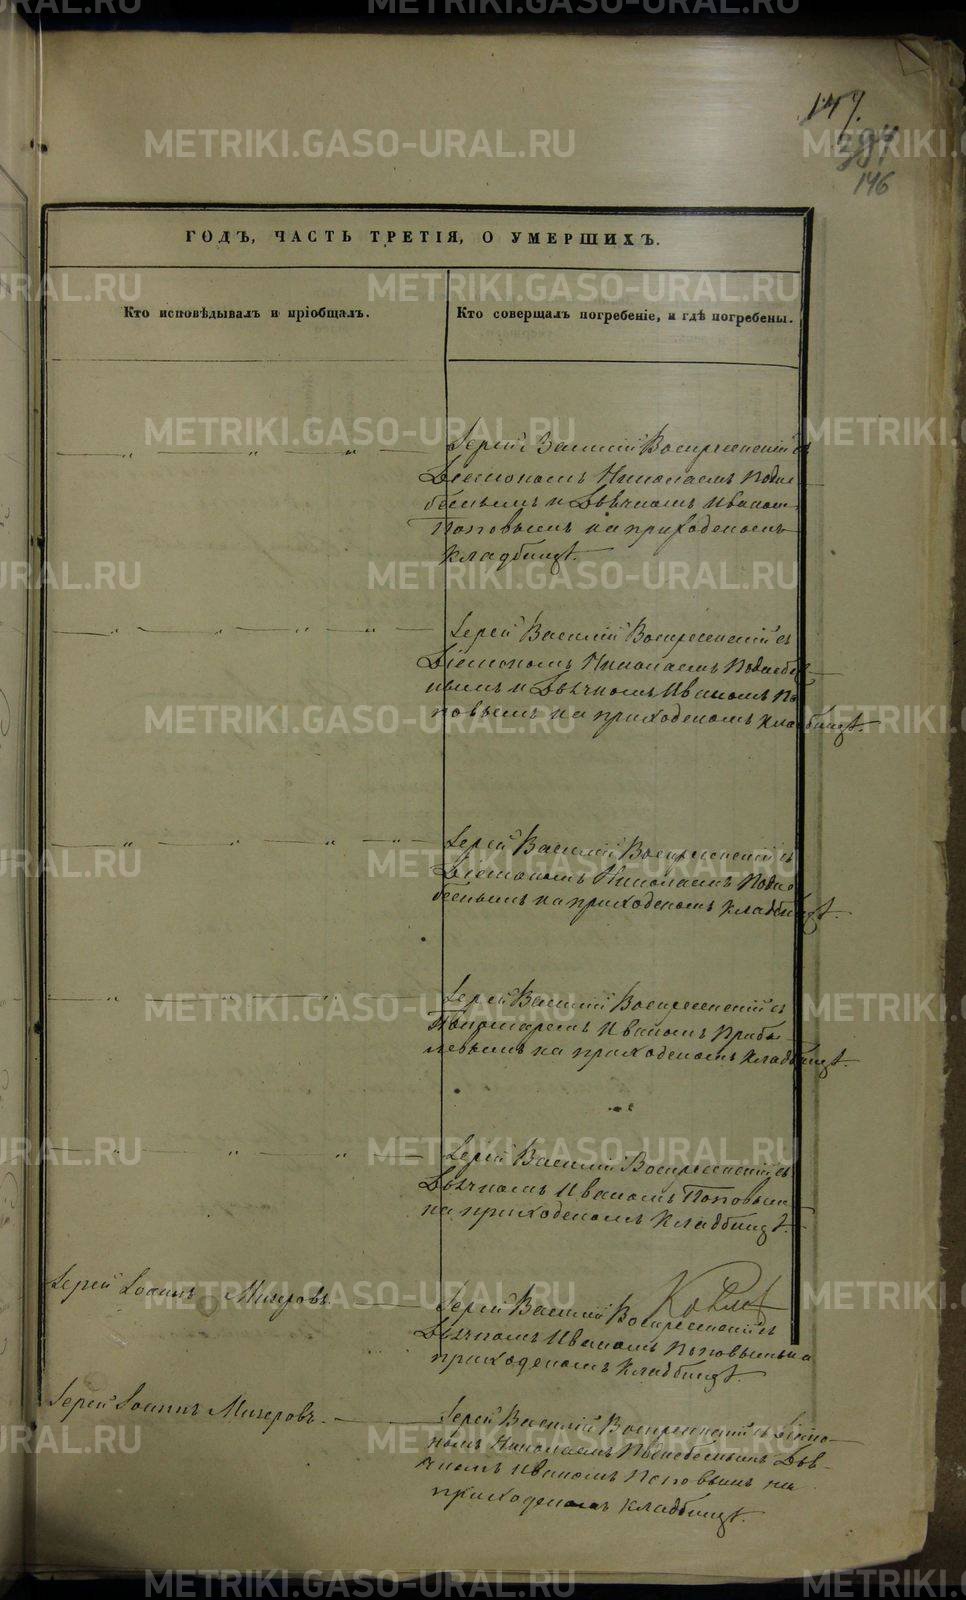 147.
391
146
ГОДЪ, ЧАСТЬ ТРЕТІЯ, О УМЕРШИХЪ.
Кто исповѣдывалъ и пріобщалъ.
Кто совершалъ погребеніе, и гдѣ погребены.
Іерей Василій Воскресенскій съ
Діакономъ Николаемъ Подне
беснымъ и Дьячкомъ Иваномъ
Поповымъ на приходскомъ
кладбищѣ.
Іерей Василій Воскресенскій съ
Діакономъ Николаемъ Поднебес
нымъ и Дьячкомъ Иваномъ По
повымъ на приходскомъ кладбищѣ.
Іерей Василій Воскресенскій съ
Діакономъ Николаемъ Подне
беснымъ на приходскомъ кладбищѣ.
Іерей Василій Воскресенскій съ
Пономаремъ Иваномъ Прибы
левымъ на приходскомъ кладбищѣ.
Іерей Василій Воскресенскій съ
Дьячкомъ Иваномъ Поповымъ
на приходскомъ кладбищѣ.
Іерей Іоаннъ Мизеровъ.
Іерей Василій Воскресенскій съ
Дьячкомъ Иваномъ Поповымъ на
приходскомъ кладбищѣ.
Іерей Іоаннъ Мизеровъ.
Іерей Василій Воскресенскій съ Діако-
номъ Николаемъ Поднебеснымъ Дья-
чкомъ Иваномъ Поповымъ на
приходскомъ кладбищѣ.
METRIKI.GASO-URAL.RU